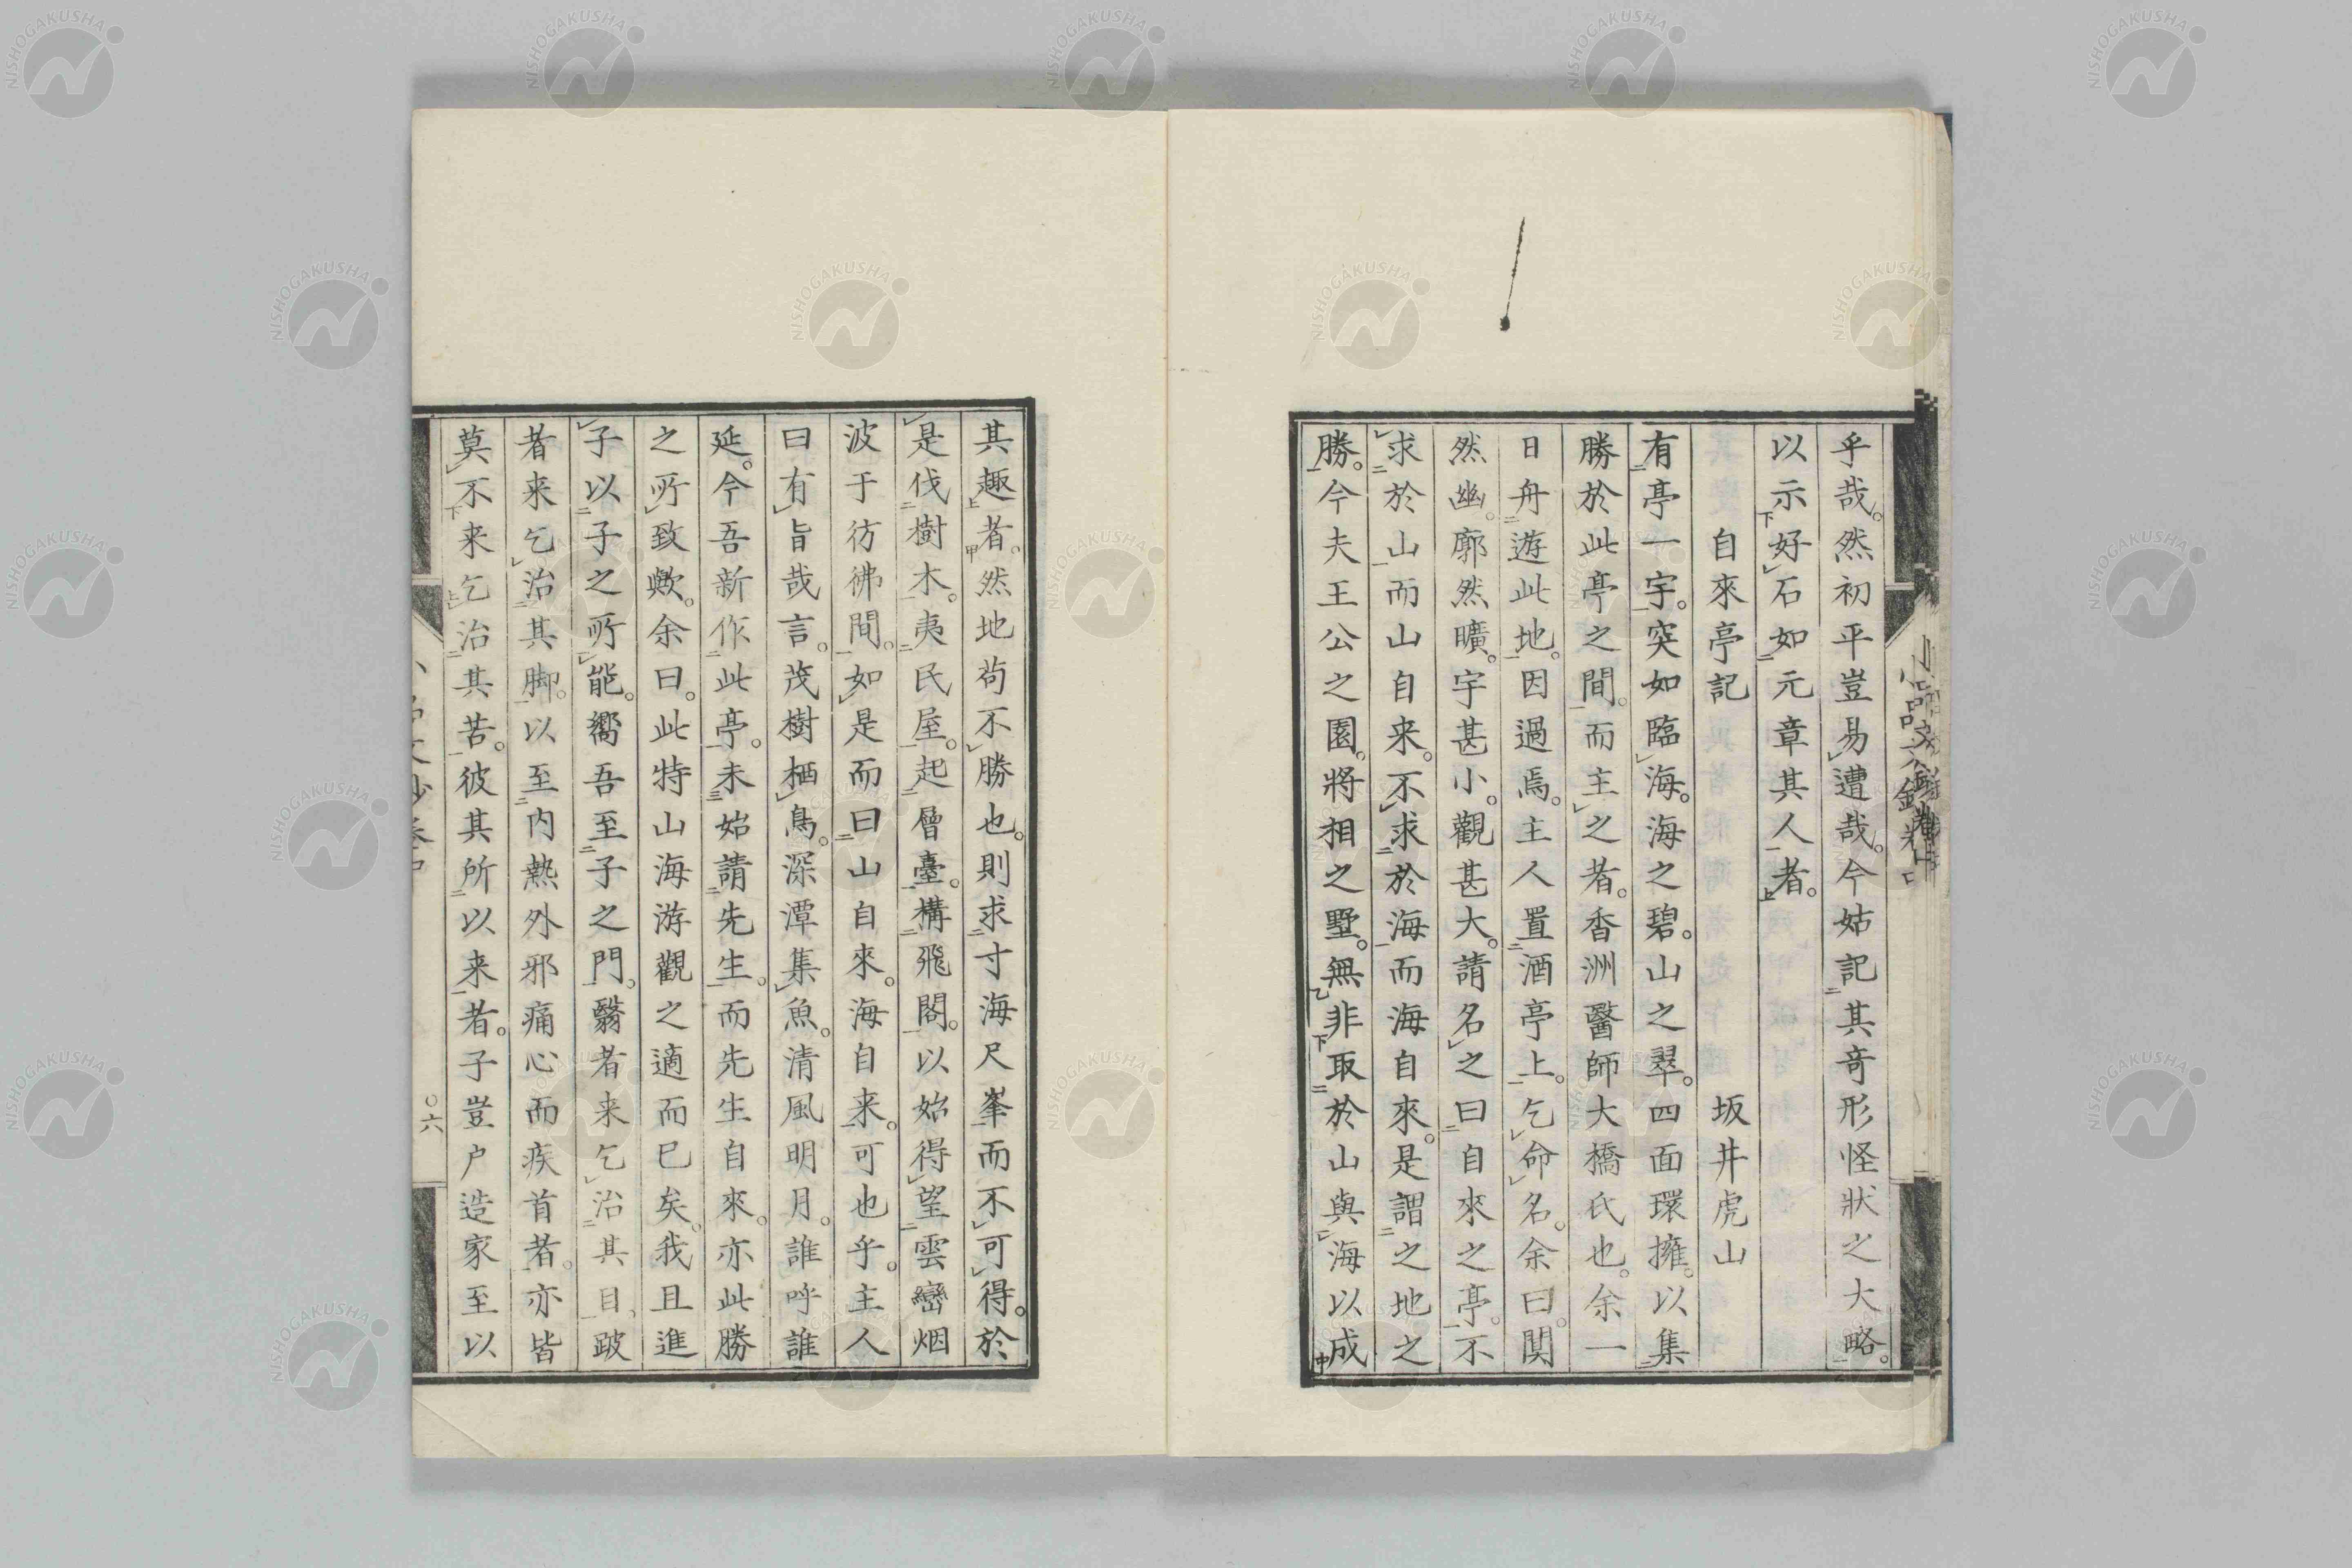 乎哉。然初平豈易遭哉。今姑記其奇形怪狀之大略。
以示好石如元章其人者。
自來亭記 坂井虎山
有亭一宇。突如臨海。海之碧。山之翠。四面環擁。以集
勝於此亭之間。而主之者。香洲醫師大橋氏也。余一
日舟遊此地。因過焉。主人置酒亭上。乞命名。余曰。闃
然幽。廓然曠。宇甚小。觀甚大。請名之曰自來之亭。不
求於山而山自来。不求於海而海自來。是謂之地之
勝。今夫王公之園。將相之墅。無非取於山與海以成
其趣者。然地苟不勝也。則求寸海尺峯而不可得。於
是伐樹木。夷民屋。起層臺。構飛閣。以始得望雲巒烟
波于彷彿間。如是而曰山自來。海自来。可也乎。主人
曰有旨哉言。茂樹栖鳥。深潭集魚。清風明月。誰呼誰
延。今吾新作此亭。未始請先生。而先生自來。亦此勝
之所致歟。余曰。此特山海游觀之適而已矣。我且進
子以子之所能。嚮吾至子之門。翳者来乞治其目。跛
者来乞治其脚。以至内熱外邪痛心而疾首者。亦皆
莫不来乞治其苦。彼其所以来者。子豈户造家至以
六
NISHOGAKUSHA